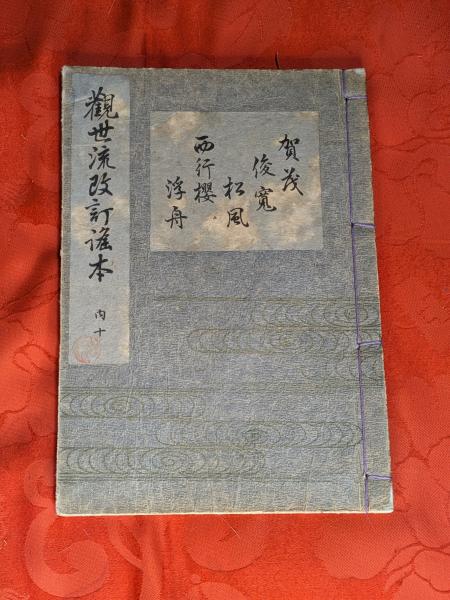 賀茂
俊寬
松風
西行櫻
浮舟
觀世流改訂謠本
内十